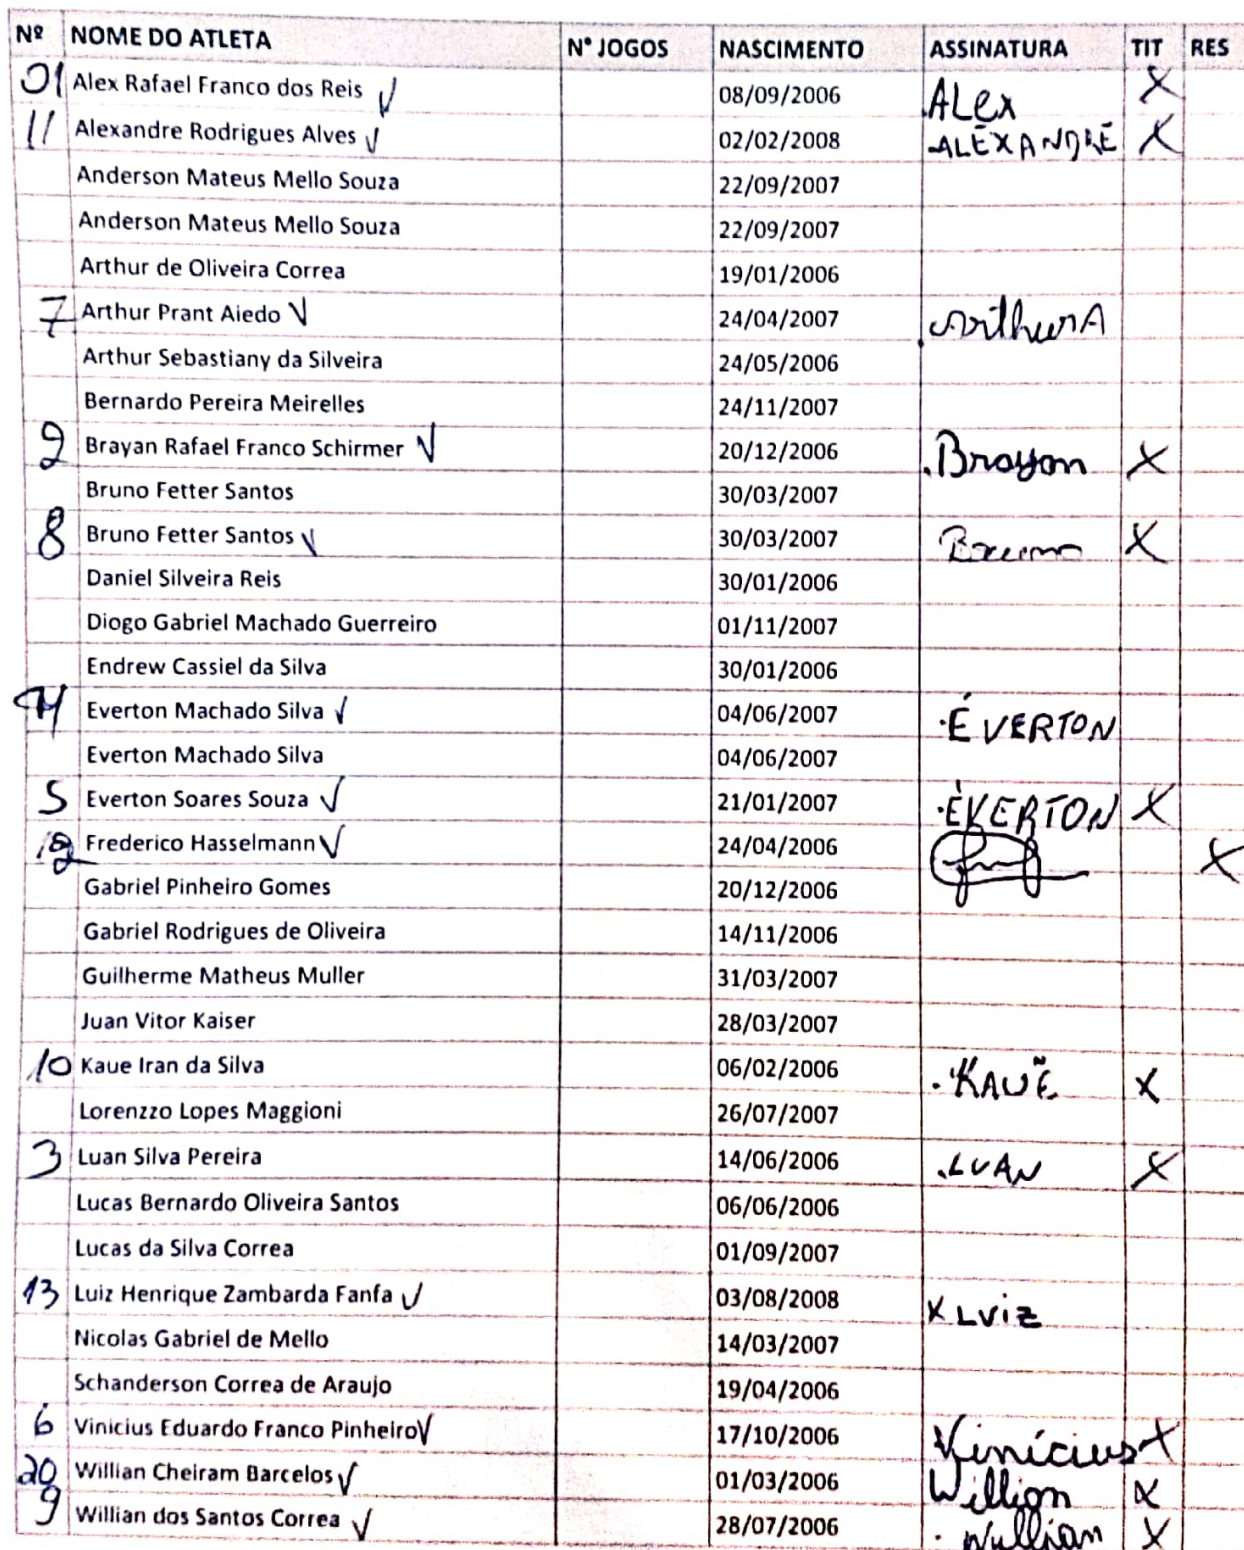 Nº NOME DO ATLETA N° JOGOS NASCIMENTO ASSINATURA TIT RES
01 Alex Rafael Franco dos Reis √ 08/09/2006 ALex X
11 Alexandre Rodrigues Alves √ 02/02/2008 ALEXANDRE X
Anderson Mateus Mello Souza 22/09/2007
Anderson Mateus Mello Souza 22/09/2007
Arthur de Oliveira Correa 19/01/2006
7 Arthur Prant Aiedo √ 24/04/2007 Arthur A
Arthur Sebastiany da Silveira 24/05/2006
Bernardo Pereira Meirelles 24/11/2007
2 Brayan Rafael Franco Schirmer √ 20/12/2006 Brayan X
Bruno Fetter Santos 30/03/2007
8 Bruno Fetter Santos √ 30/03/2007 Bruno X
Daniel Silveira Reis 30/01/2006
Diogo Gabriel Machado Guerreiro 01/11/2007
Endrew Cassiel da Silva 30/01/2006
Everton Machado Silva √ 04/06/2007 ÉVERTON
Everton Machado Silva 04/06/2007
5 Everton Soares Souza √ 21/01/2007 ÉVERTON X
Frederico Hasselmann √ 24/04/2006 X
Gabriel Pinheiro Gomes 20/12/2006
Gabriel Rodrigues de Oliveira 14/11/2006
Guilherme Matheus Muller 31/03/2007
Juan Vitor Kaiser 28/03/2007
10 Kaue Iran da Silva 06/02/2006 KAUÊ X
Lorenzzo Lopes Maggioni 26/07/2007
3 Luan Silva Pereira 14/06/2006 LUAN X
Lucas Bernardo Oliveira Santos 06/06/2006
Lucas da Silva Correa 01/09/2007
13 Luiz Henrique Zambarda Fanfa √ 03/08/2008 X LUiz
Nicolas Gabriel de Mello 14/03/2007
Schanderson Correa de Araujo 19/04/2006
6 Vinicius Eduardo Franco Pinheiro √ 17/10/2006 Vinícius X
20 Willian Cheiram Barcelos √ 01/03/2006 Willian X
9 Willian dos Santos Correa √ 28/07/2006 Willian X